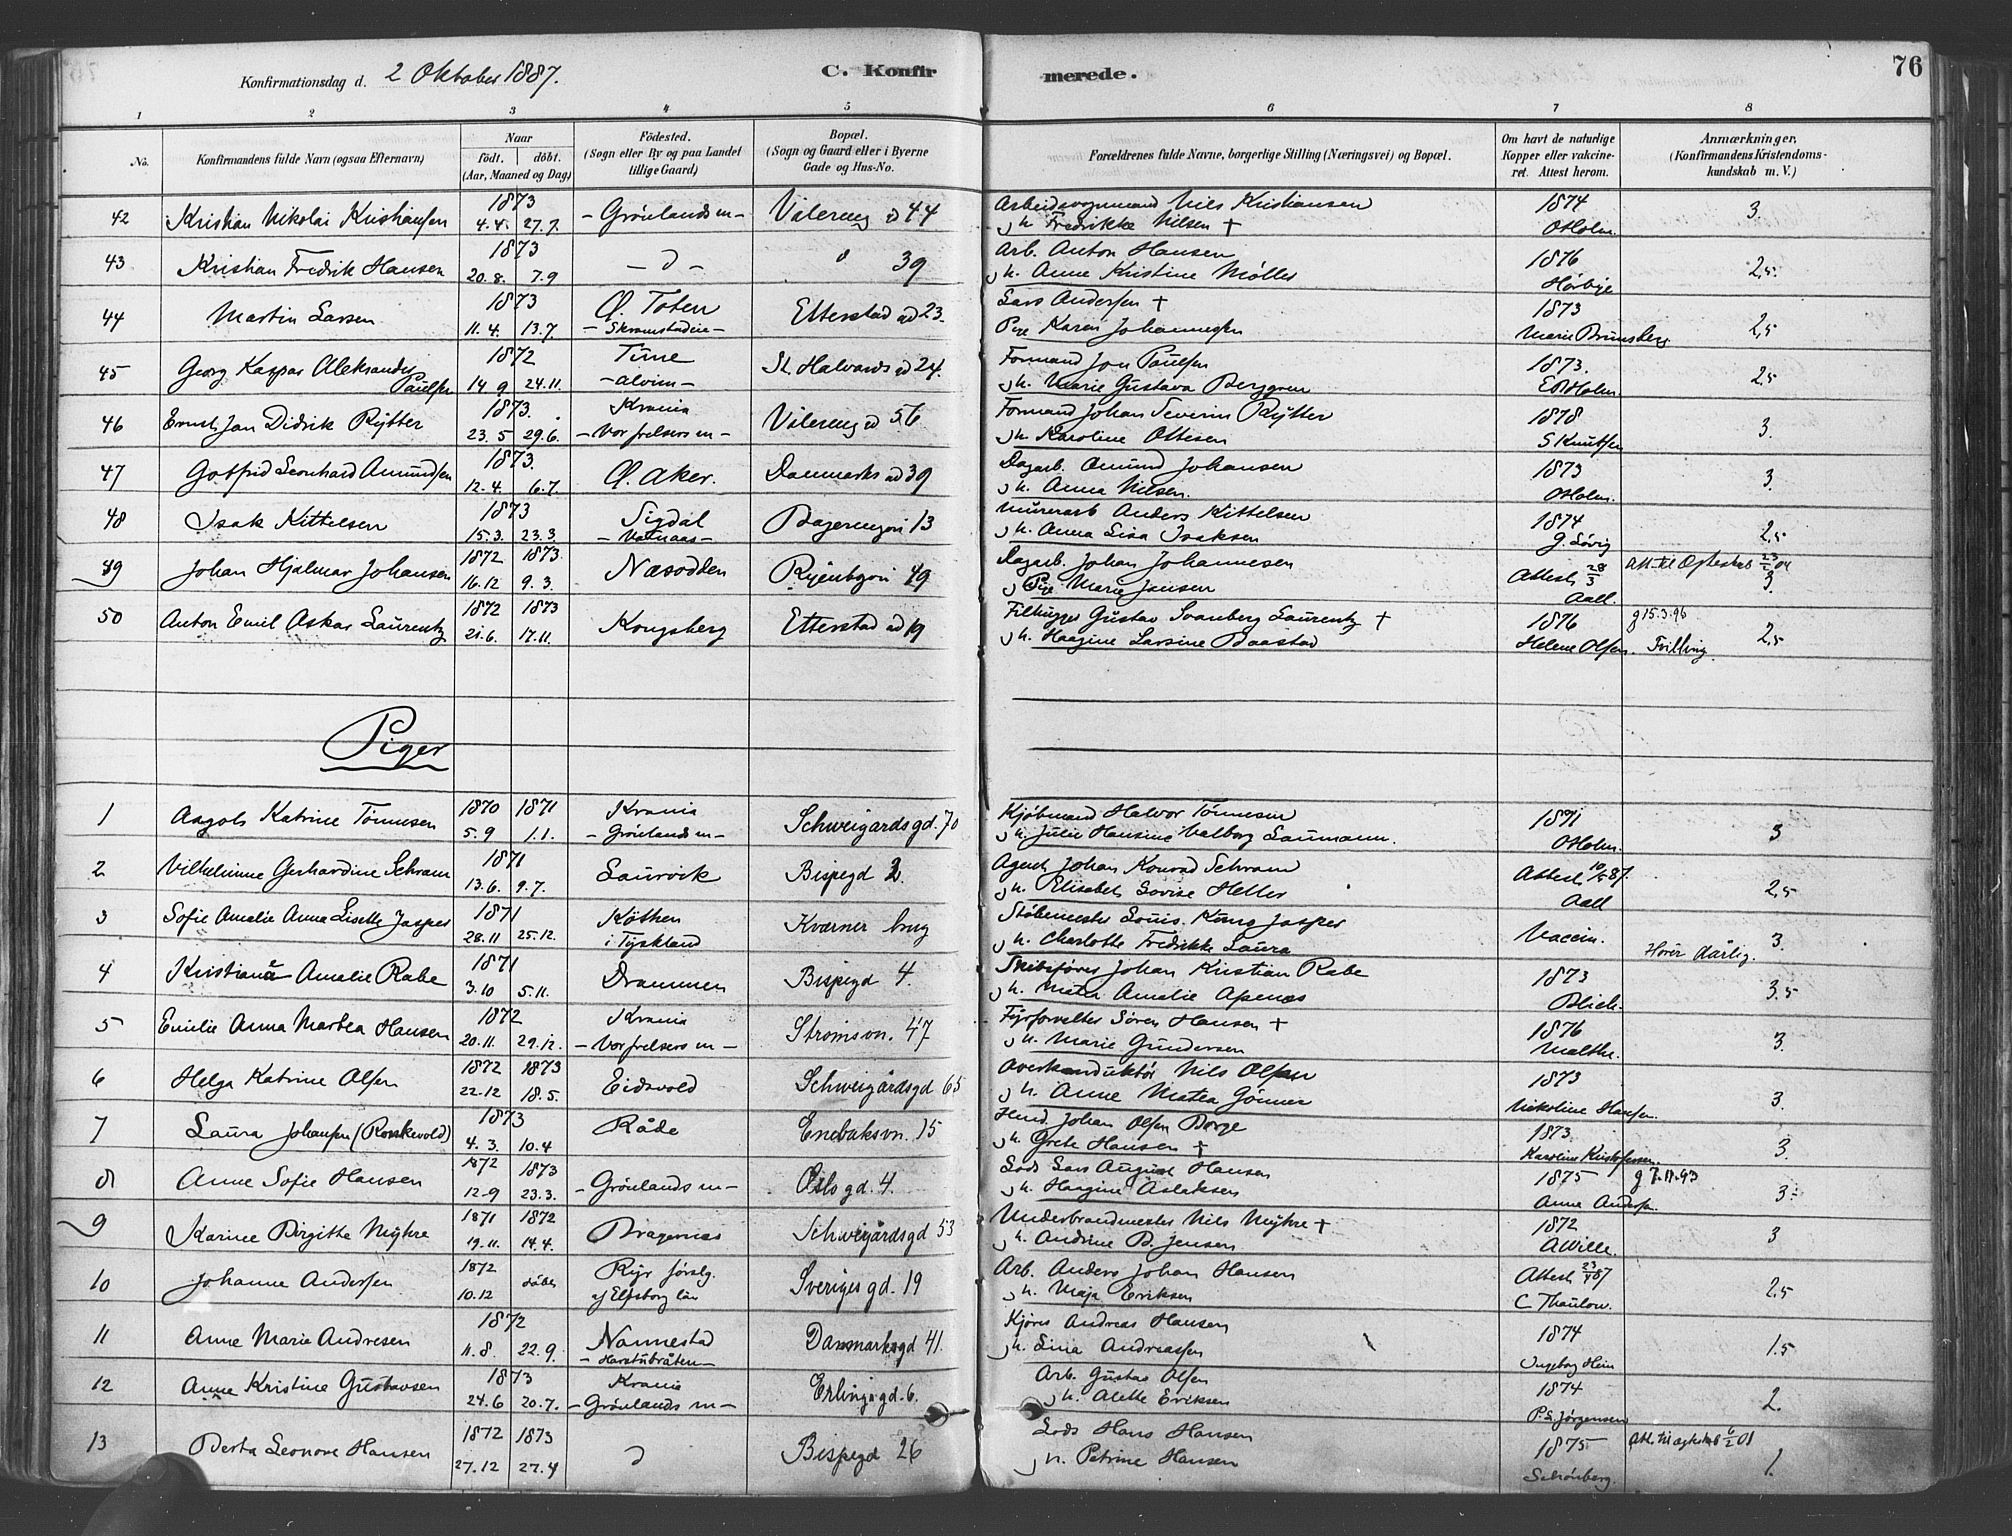 Konfirmationsdag d. 2 Oktober 1887. C. Konfirmerede. 76
1 2 3 4 5 6 7 8
No. Konfirmandens fulde Navn (ogsaa Efternavn) Naar født. døbt. (Aar, Maaned og Dag) Fødested. (Sogn eller By og paa Landet tillige Gaard) Bopæl. (Sogn og Gaard eller i Byerne Gade og Hus-No. Forældrenes fulde Navne, borgerlige Stilling (Næringsvei) og Bopæl. Om havt de naturlige Kopper eller vaccineret. Attest herom. Anmærkninger, (Konfirmandens Kristendomskundskab m. V.)
42 Kristian Nikolai Kristiansen 1873 4.4. 27.7. - Grønlands m - Vålereng d 44 Arbeidsvognmand Nils Kristiansen
h. Fredrikke Nilsen + 1874 OHolm. 3.
43 Kristian Fredrik Hansen 1873 20.8. 7.9 - d - d 39 Arb. Anton Hansen
h. Anne Kristine Møller 1876 Hørbye 2,5.
44 Martin Larsen 1873 11.4. 13.7. Ø. Toten - Skramstadeie - Etterstad ad 23. Lars Andersen +
Pige Karen Johannessen 1873 Marie Brunsberg 2,5
45 Georg Kaspar Aleksander Paulsen 1872 14.9 24.11. Time - Alvim - St Halvards d 24. Formand Jon Paulsen
h. Marie Gustava Berggren 1873. EBHolm 2,5
46 Ernst Jan Didrik Rytter 1873. 23.5 29.6. Krania - Vor frelsers m - Vålereng d 56 Formand Johan Severin Rytter
h. Karoline Ottesen 1878 S Knutsen 3.
47 Gotfrid Leonhard Amundsen 1873. 12.4. 6.7. Ø. Aker. Danmarks ad 39 Dagarb. Amund Johansen
h. Anna Nilsen. 1873 OHolm. 3.
48 Isak Kittelsen 1873 15.3. 23.3. Sigdal - Vatnaas - 13 Murerarb Anders Kittelsen
h. Anna Lisa Isaksen 1874 G. Løvig 2,5
49 Johan Hjalmar Johansen 1872 16.12 1873. 9.3. Næsodden 49 Dagarb. Johan Johannesen
Pige Marie Jensen Attest 28/3 Aall. Att. til Ægtesk 23/2 04 3.
50 Anton Emil Askar Laurentz 1872 21.6. 1873 17.11. Kongsberg Etterstad ad 19 Filhugger Gustav Svanberg Laurentz +
h. Haagine Larsine Baastad 1876 Helene Olsen. g 15.3.96 Tvilling. 2,5
Piger
1 Aagots Katrine Tønnesen 1870 5.9 1871 1.1. Krania - Grønlands m - Schweigårdsgd. 70 Kjøbmand Halvor Tønnesen
h. Julie Hansine Valborg Laumann. 1871 OHolm. 3
2 Vilhelmine Gerhardine Schram 1871 13.6. 9.7. Laurvik Bispegd 2. Agent Johan Konrad Schram
h. Elisabet Lovise Heller Attest 10/5 87. Aall 2,5
3 Sofie Amalie Anna Lisette Jasper 1871 28.11 25.12. Køthen i Tyskland Kværner brug Støbemester Louis Jasper
h. Charlotte Fredrikke Laura Vaccin. Hører dårlig. 3.
4 Kristiane Amalie Rabe 1871 3.10 5.11. Drammen Bispegd 4. Skibsfører Johan Kristian Rabe
h. Mater Amalie Apenæs 1873 Blich. 3.5
5 Emilie Anna Martea Hansen 1872 20.11. 29.12. Krania - Vor frelsers m - Strømsvn. 47 Fyrforvalter Søren Hansen +
h. Marie Gundersen 1876 Malthe. 3.
6 Helga Katrine Olsen 1872 22.12 1873 18.5. Eidsvold Schweigårdsgd 65 Overkonduktør Nils Olsen
h. Anne Matea Gønner 1873 Nikoline Hansen. 3.
7 Laura Johansen (Roskevold) 1873 4.3. 10.4 Råde Enebaksvn. 15 Husd. Johan Olsen Borge
h. Grete Hansen + 1873. Karoline Kristofersen. 3.
8 Anne Sofie Hansen 1872 12.9 1873 23.3. - Grønlands m - Oslogd. 4. Lods Lars August Hansen
h. Haagine Aslaksen 1875 Anne Andersen. g 7.11.93 3.
9 Karine Birgitte Myhre 1871 19.11. 1872 14.4. Bragernæs Schweigårdsgd 53 Underbrandmester Nils Myhre +
h. Andrine B. Jensen 1872 AWille. 3
10 Johanne Andersen 1872 10.12 døbt Ryr førslg. af Elfsborg län Sverigesgd. 19 Arb. Anders Johan Hansen
h. Maja Eriksen Attest 23/4 87 C Thaulow. 2,5
11 Anne Marie Andresen 1872 11.8. 22.9. Nannestad - Harstubråten - Danmarksgd 41. Kjører Andreas Hansen
h. Lina Andreassen 1874 Ingeborg Heim 1.5
12 Anne Kristine Gustavsen 1873 24.6 20.7. Krania - Grønlands m - Erlingsgd. 6. Arb. Gustav Olsen
h. Alette Eriksen 1874 P.S. Jørgensen 2.
13 Berta Leonore Hansen 1872 27.12 1873 27.4 d Bispegd 26 Lods Hans Hansen
h. Petrine Hansen 1875 Schønberg. Att. til ægtesk 6/2 01 1.